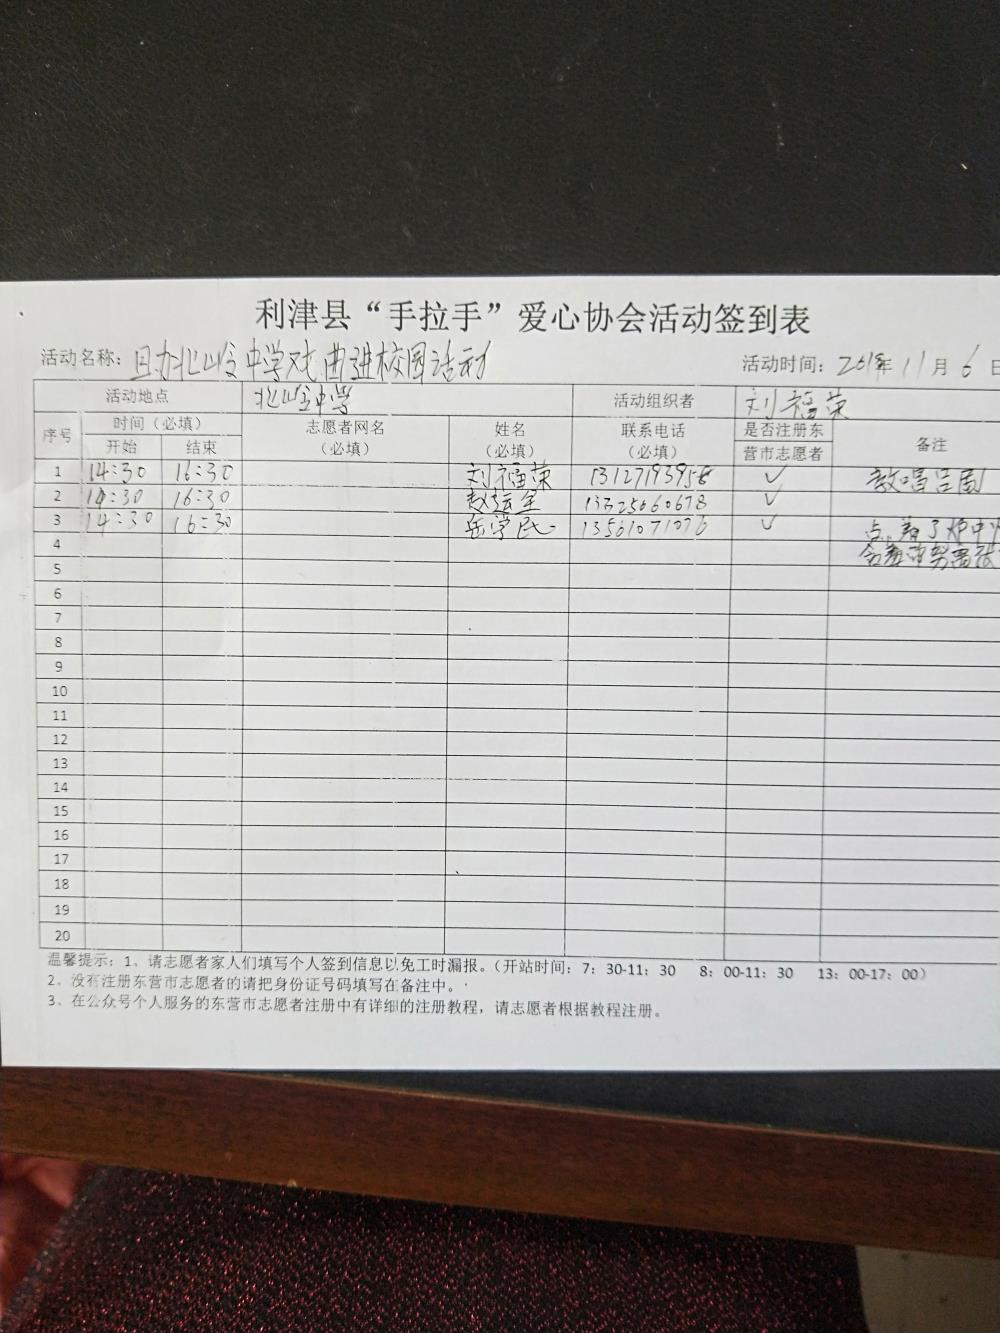 利津县“手拉手”爱心协会活动签到表
活动名称：北岭中学戏曲进校园活动 活动时间：2018年11月6日
活动地点 北岭中学 活动组织者 刘福荣
序号 时间（必填） 志愿者网名（必填） 姓名（必填） 联系电话（必填） 是否注册东营市志愿者 备注
开始 结束
1 14:30 16:30 刘福荣 13127193958 ✓ 教唱吕剧
2 14:30 16:30 赵运全 13325060678 ✓
3 14:30 16:30 岳学民 13561071076 ✓
4
5
6
7
8
9
10
11
12
13
14
15
16
17
18
19
20
温馨提示：1、请志愿者家人们填写个人签到信息以免工时漏报。（开站时间：7：30-11：30 8：00-11：30 13：00-17：00）
2、没有注册东营市志愿者的请把身份证号码填写在备注中。
3、在公众号个人服务的东营市志愿者注册中有详细的注册教程，请志愿者根据教程注册。